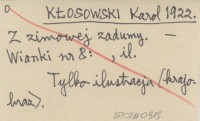 KŁOSOWSKI Karol 1922.
Z zimowej zadumy. —
Wianki nr 8: , il.
Tylko ilustracja (krajo-
braz).